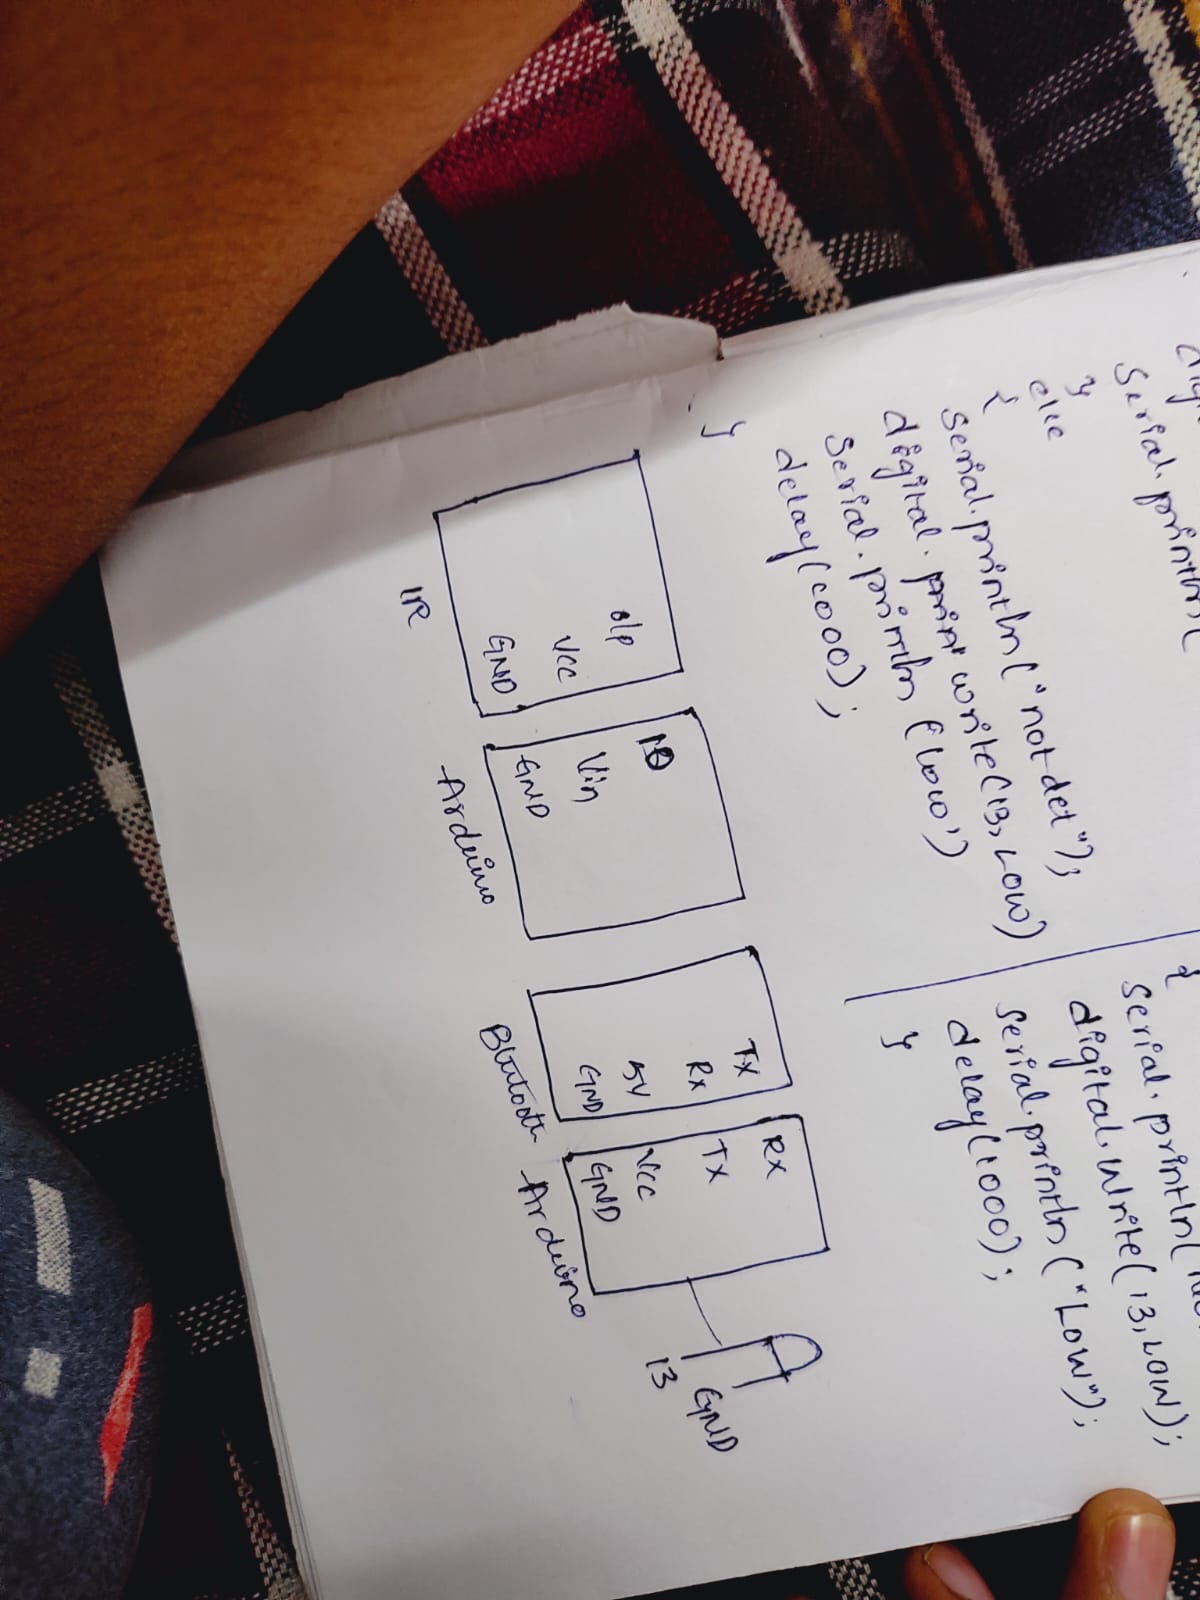 Serial.println(
}
else
{
Serial.println("not det");
digital. write(13, LOW)
Serial.println ('low')
delay(1000);
}
{
Serial.println(
digital.Write(13, LOW);
Serial.println("Low");
delay(1000);
}
o/p
Vcc
GND
IR
10
Vin
GND
Arduino
Tx
Rx
5V
GND
Blutooth
Rx
Tx
Vcc
GND
Arduino
13
GND